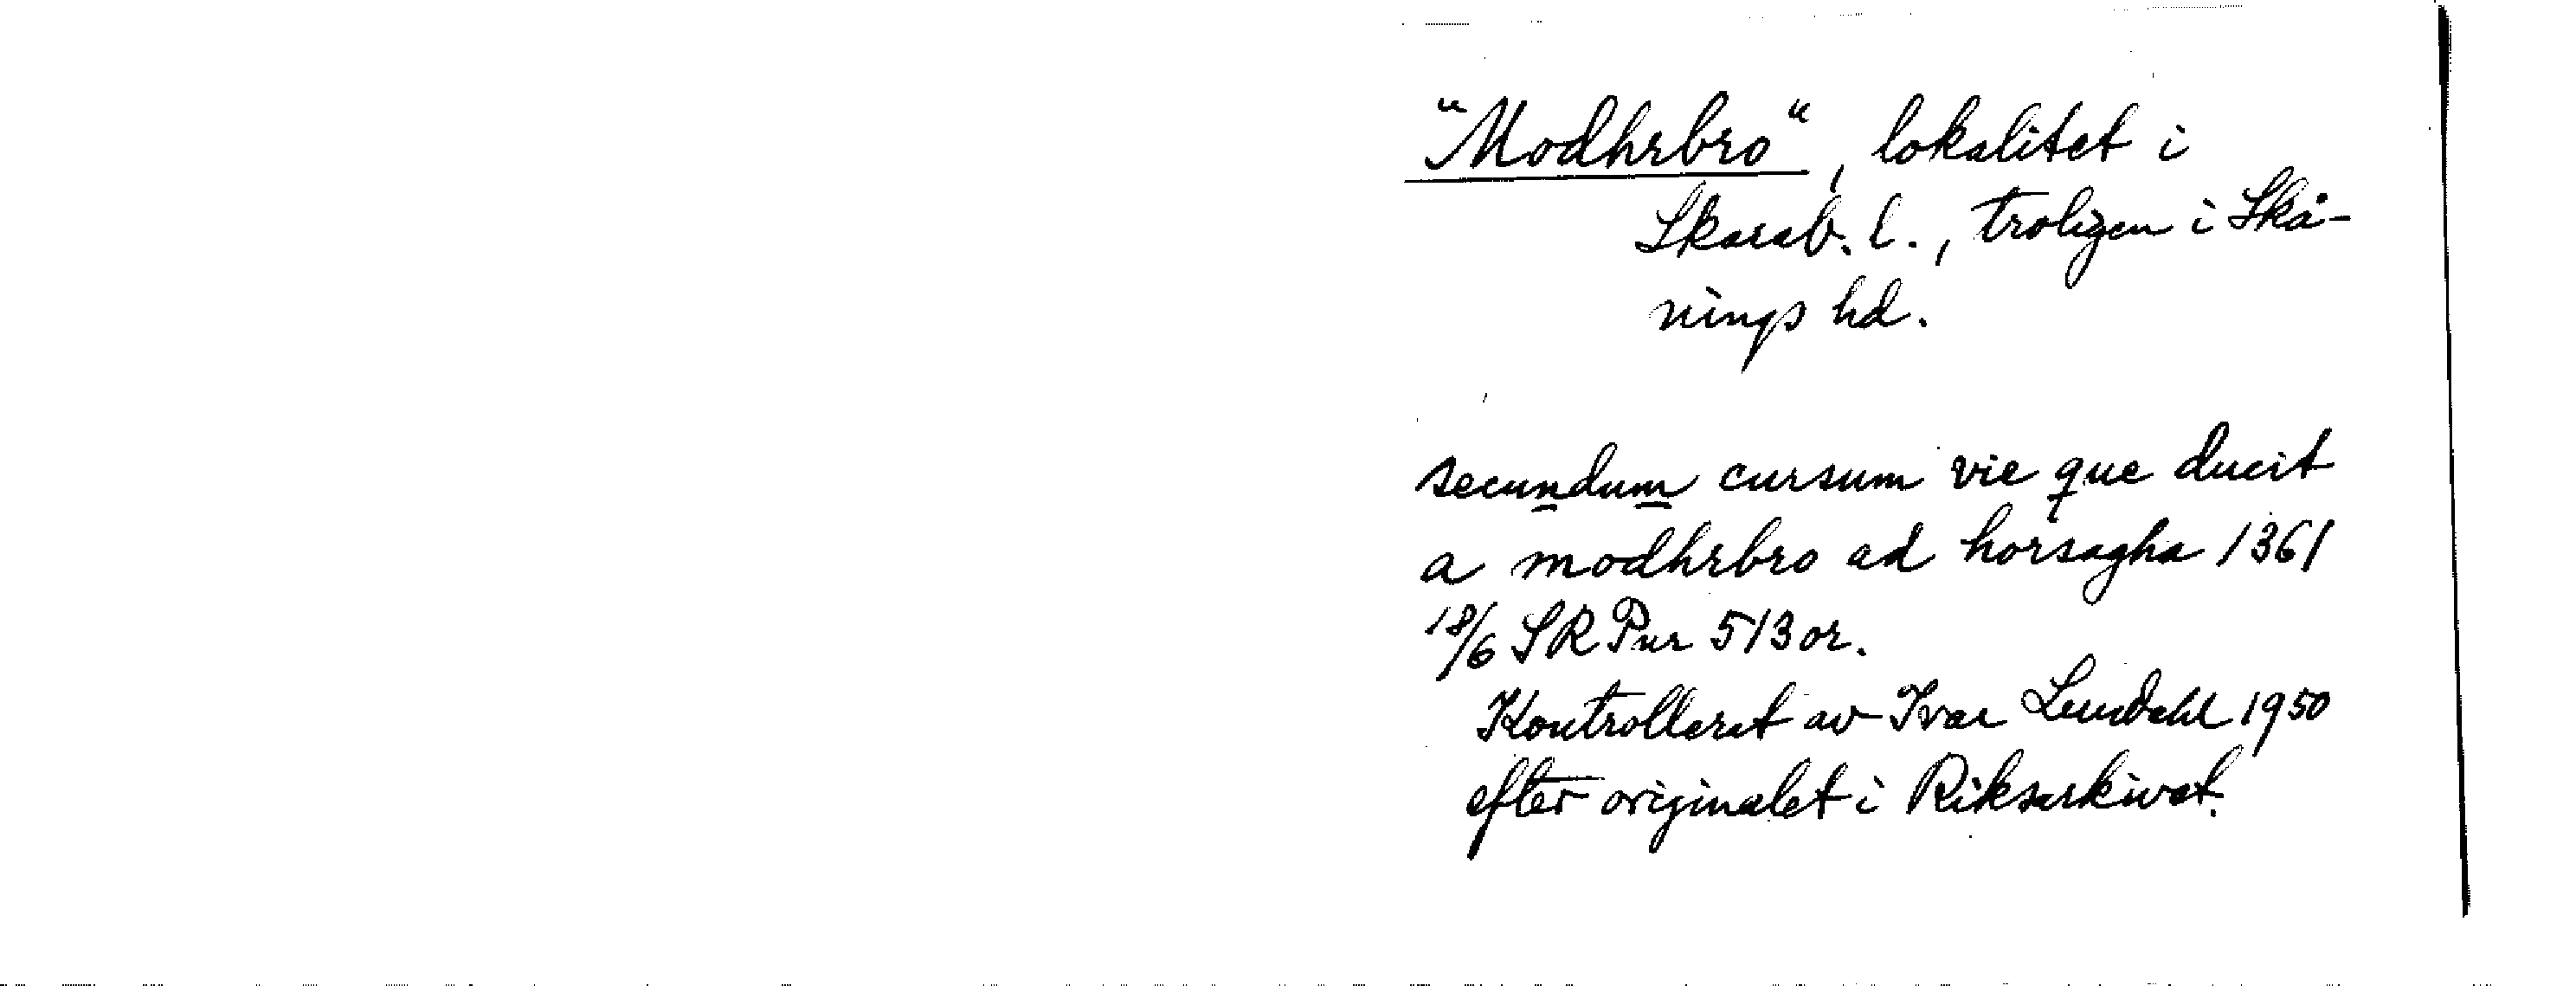 "Modhrbro", lokalitet i
Skarab. l., troligen i Skå-
nings hd.
secundum cursum vie que ducit
a modhrbro ad horsagha 1361
18/6 SR Pur 513 or.
Kontrollerat av Ivar Lundahl 1950
efter originalet i Riksarkivet.